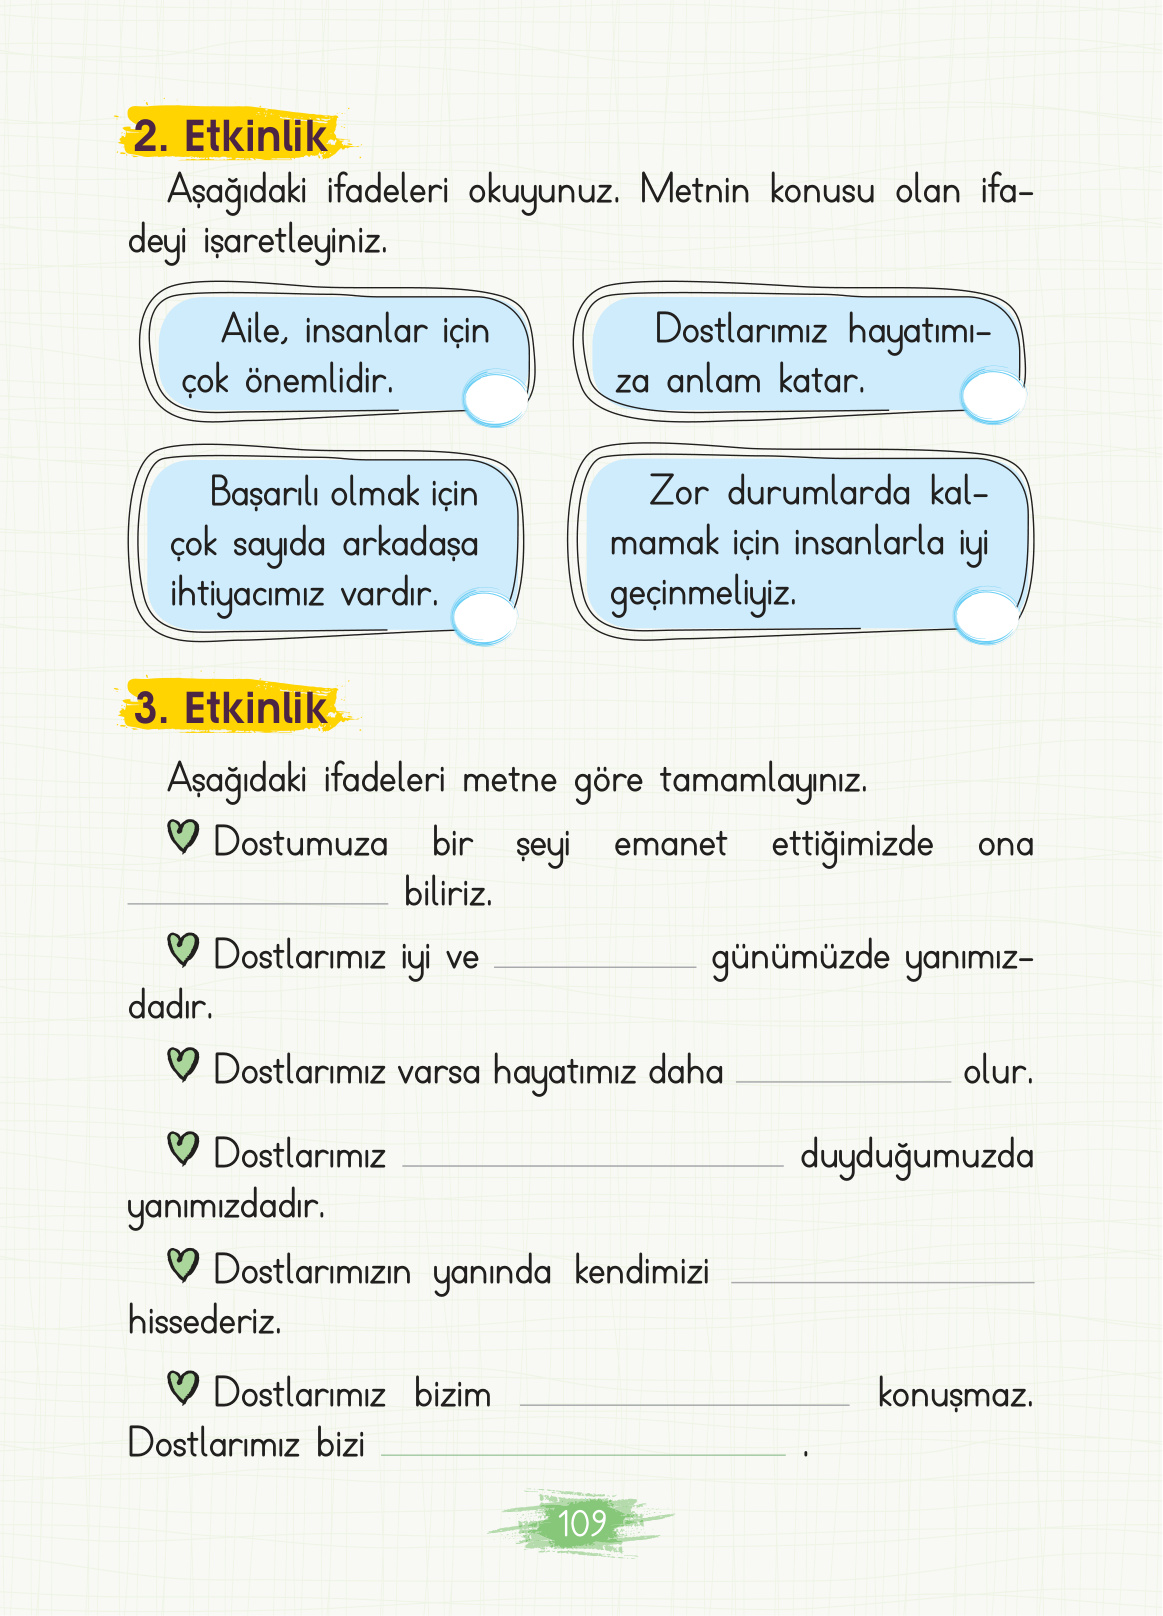 2. Etkinlik
Aşağıdaki ifadeleri okuyunuz. Metnin konusu olan ifa-
deyi işaretleyiniz.
Aile, insanlar için
çok önemlidir.
Dostlarımız hayatımı-
za anlam katar.
Başarılı olmak için
çok sayıda arkadaşa
ihtiyacımız vardır.
Zor durumlarda kal-
mamak için insanlarla iyi
geçinmeliyiz.
3. Etkinlik
Aşağıdaki ifadeleri metne göre tamamlayınız.
Dostumuza bir şeyi emanet ettiğimizde ona
biliriz.
Dostlarımız iyi ve günümüzde yanımız-
dadır.
Dostlarımız varsa hayatımız daha olur.
Dostlarımız duyduğumuzda
yanımızdadır.
Dostlarımızın yanında kendimizi
hissederiz.
Dostlarımız bizim konuşmaz.
Dostlarımız bizi .
109